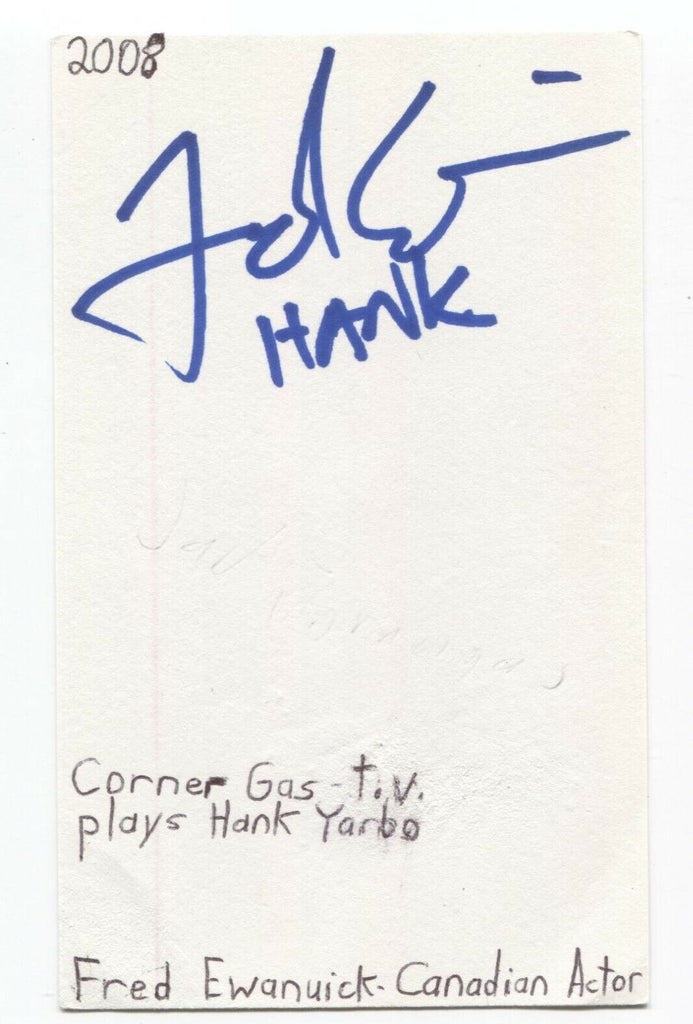 2008
Fred Ew
HANK
Corner Gas - t.v.
plays Hank Yarbo
Fred Ewanuick - Canadian Actor